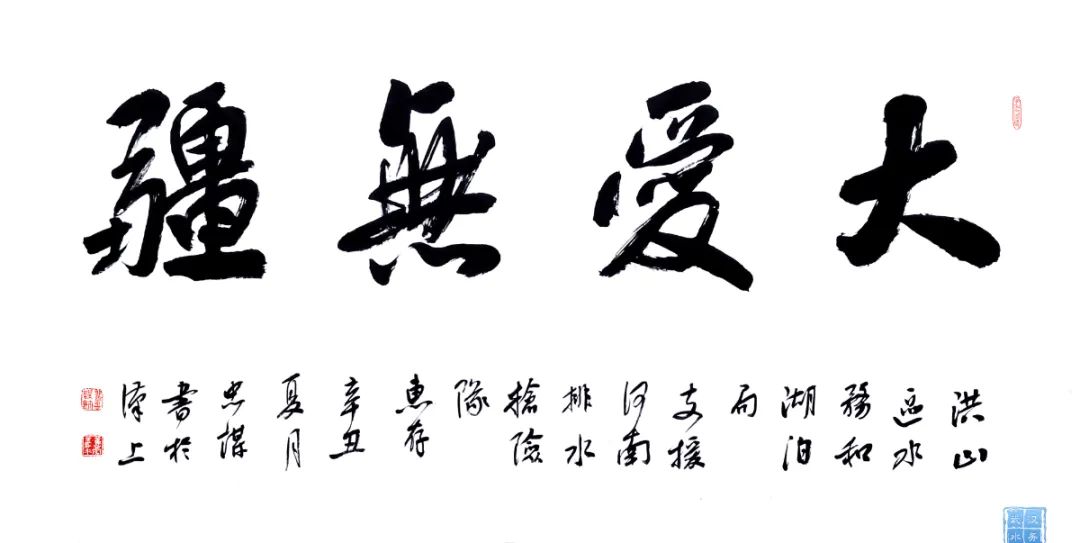 大愛無疆
洪山
區水
務和
湖泊
局
支援
河南
排水
搶險
隊
惠存
辛丑
夏月
忠謀
書於
漢上
武汉
水务